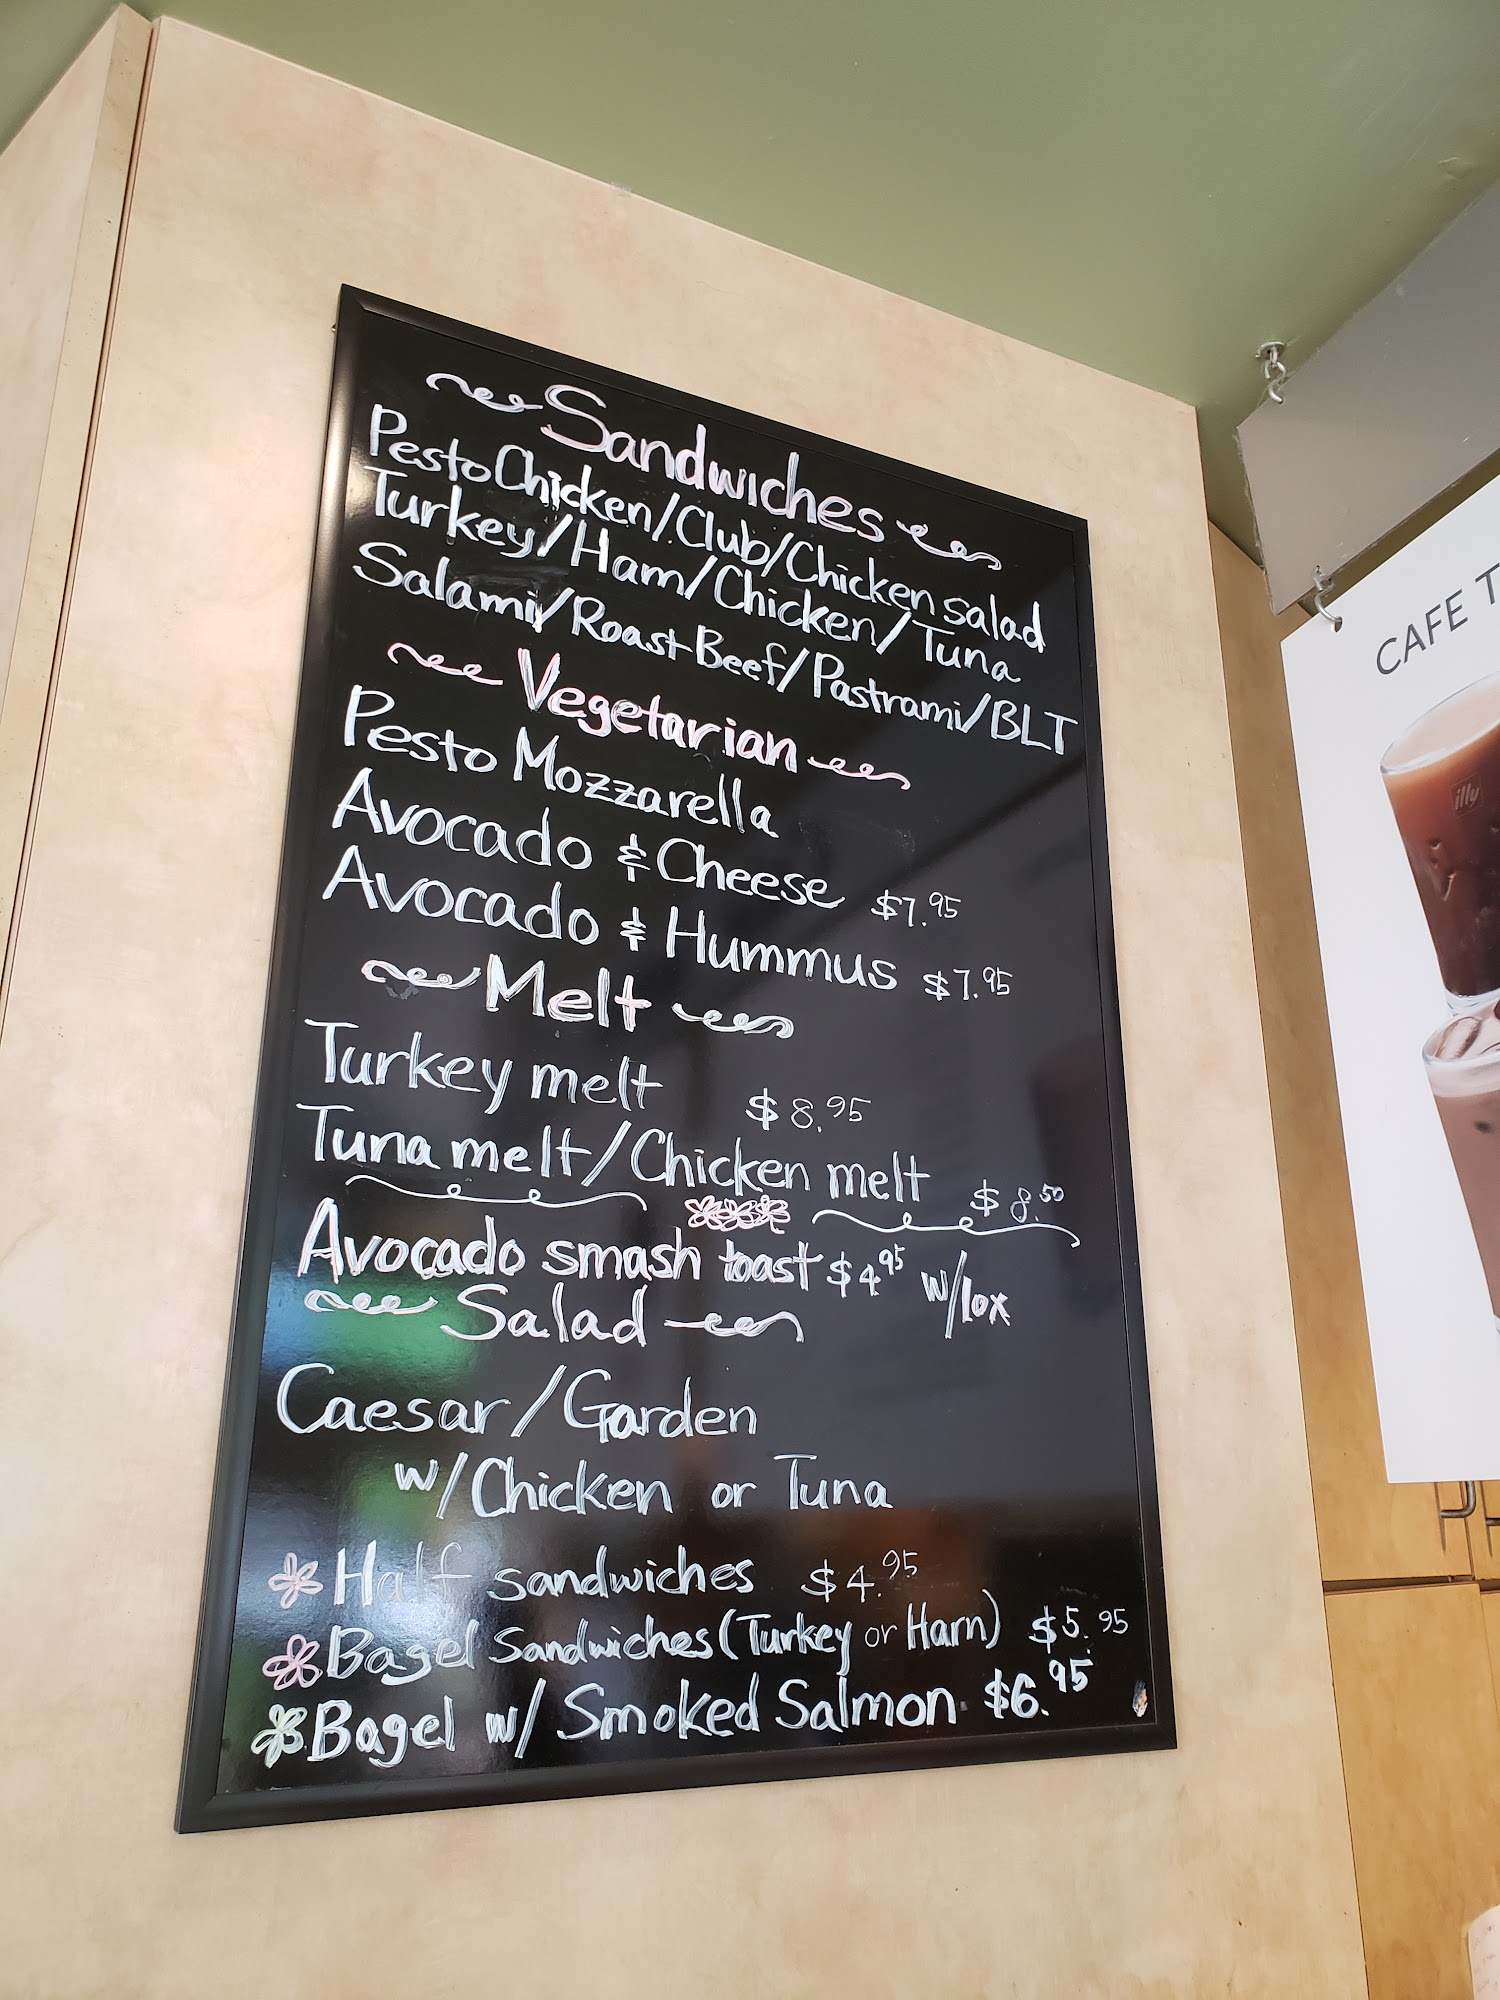 Sandwiches
Pesto Chicken/Club/Chicken salad
Turkey/Ham/Chicken/Tuna
Salami/Roast Beef/Pastrami/BLT
Vegetarian
Pesto Mozzarella
Avocado & Cheese $7.95
Avocado & Hummus $7.95
Melt
Turkey melt $8.95
Tuna melt/Chicken melt $8.50
Avocado smash toast $4.95 w/lox
Salad
Caesar/Garden
w/Chicken or Tuna
Half sandwiches $4.95
Bagel Sandwiches (Turkey or Ham) $5.95
Bagel w/ Smoked Salmon $6.95
CAFE
illy